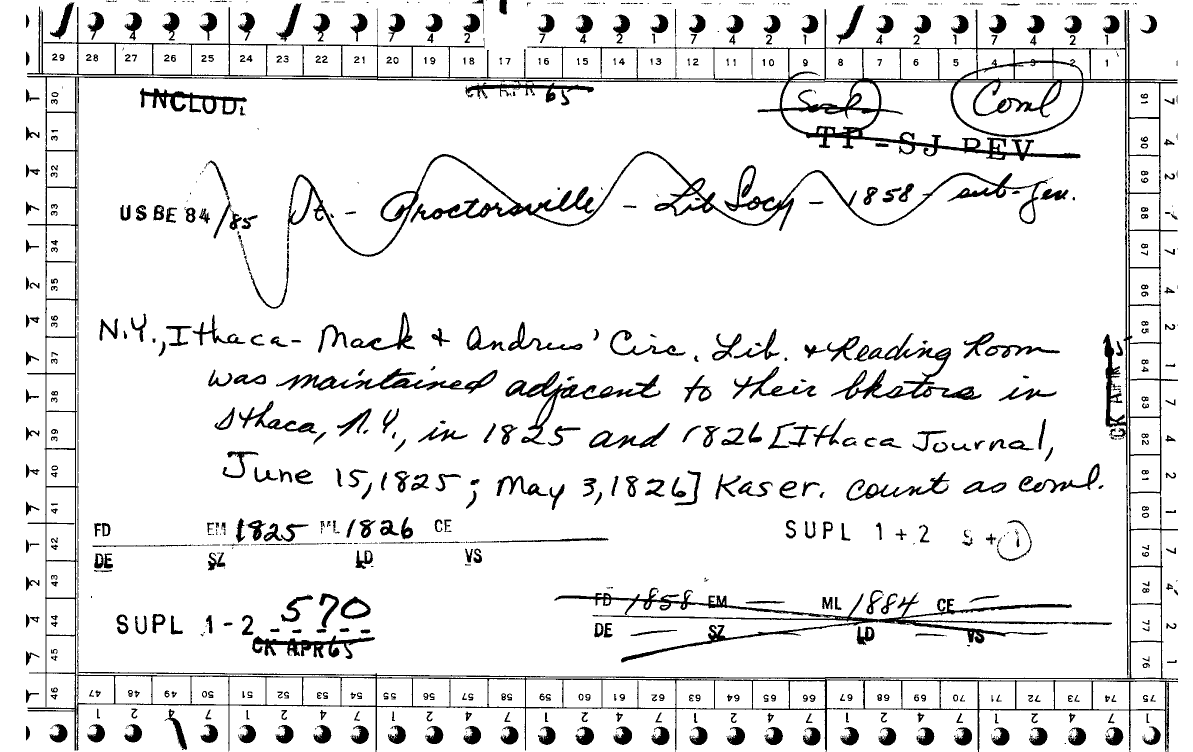 7 4 2 1 7 4 2 1 7 4 2 7 4 2 1 7 4 2 1 7 4 2 1 7 4 2 1
29 28 27 26 25 24 23 22 21 20 19 18 17 16 15 14 13 12 11 10 9 8 7 6 5 4 3 2 1
INCLUD. CK APR 65 Socl Coml
TP-SJ REV
USBE 84/85 Vt. - Proctorsville - Lib Socy - 1858 - sub-gen.
N.Y., Ithaca - Mack & Andrus' Circ. Lib. & Reading Room
was maintained adjacent to their bkstore in
Ithaca, N.Y., in 1825 and 1826 [Ithaca Journal,
June 15, 1825; May 3, 1826] Kaser. count as coml.
CK APR 65
FD EM 1825 ML 1826 CE SUPL 1+2 S+1
DE SZ LD VS
FD 1858 EM — ML 1884 CE —
SUPL 1-2 570 DE — SZ — LD — VS —
CK APR 65
30 31 32 33 34 35 36 37 38 39 40 41 42 43 44 45 46
91 90 89 88 87 86 85 84 83 82 81 80 79 78 77 76 75
47 48 49 50 51 52 53 54 55 56 57 58 59 60 61 62 63 64 65 66 67 68 69 70 71 72 73 74
1 2 4 7 1 2 4 7 1 2 4 7 1 2 4 7 1 2 4 7 1 2 4 7 1 2 4 7